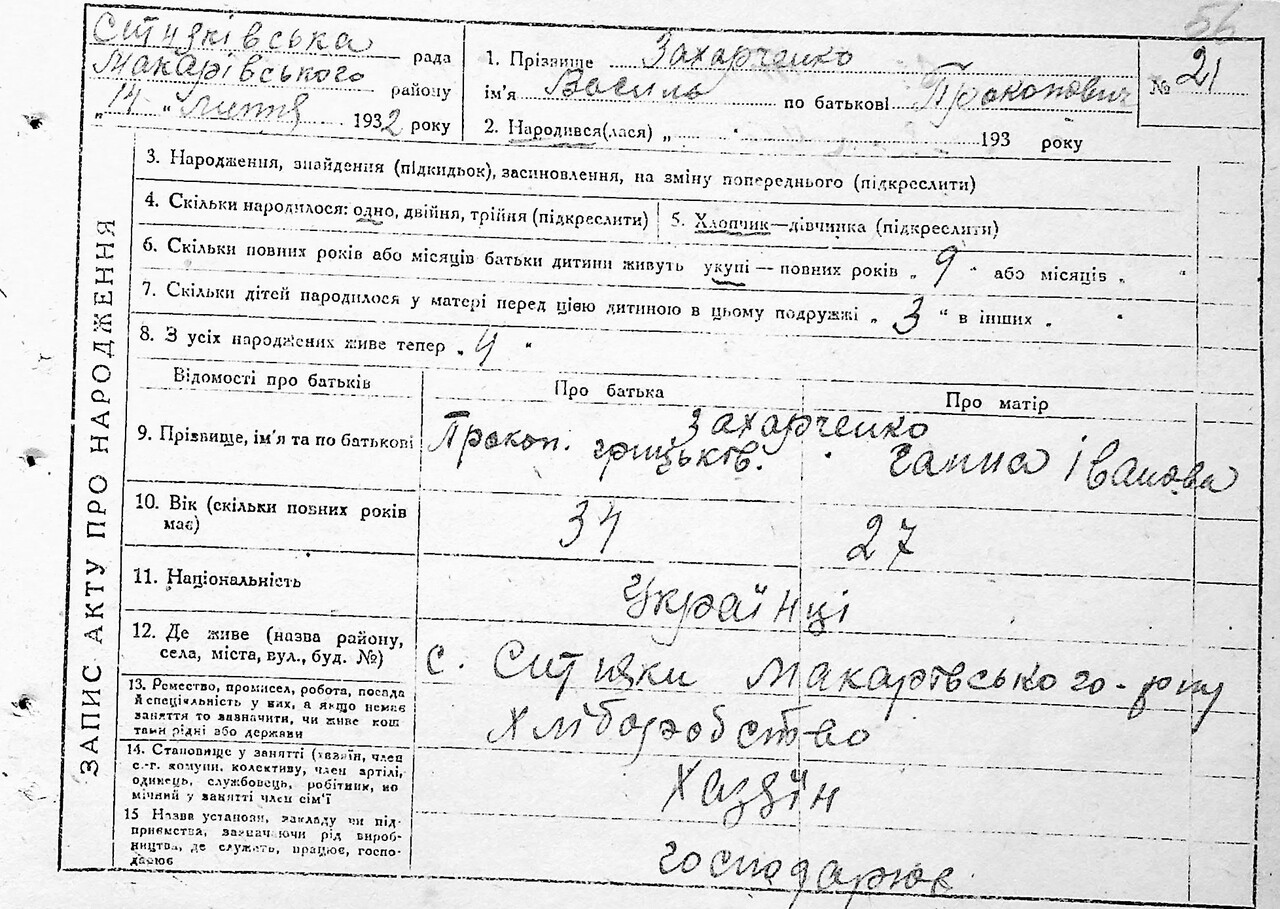 56
Ситняківська рада
Макарівського району
„14 “ липня 1932 року
1. Прізвище Захарченко
ім'я Василь по батькові Прокопович
2. Народився(лася) „ “ 193 року
№ 21
ЗАПИС АКТУ ПРО НАРОДЖЕННЯ
3. Народження, знайдення (підкидьок), засиновлення, на зміну попереднього (підкреслити)
4. Скільки народилося: одно, двійня, трійня (підкреслити)
5. Хлопчик—дівчинка (підкреслити)
6. Скільки повних років або місяців батьки дитини живуть укупі — повних років „ 9 “ або місяців „ “
7. Скільки дітей народилося у матері перед цією дитиною в цьому подружжі „ 3 “ в інших „ “
8. З усіх народжених живе тепер „ 4 “
Відомості про батьків
Про батька
Про матір
9. Прізвище, ім'я та по батькові
Захарченко
Прокоп. Грицьків. Ганна Іванова
10. Вік (скільки повних років
має)
34 27
11. Національність
Українці
12. Де живе (назва району,
села, міста, вул., буд. №)
с. Ситняки Макарівського р-ну
13. Ремество, промисел, робота, посада
й спеціяльність у них, а якщо немає
заняття то зазначити, чи живе кош
тами рідні або держави
Хліборобство
14. Становище у занятті (хазяїн, член
с.-г. комуни, колективу, член артілі,
одинець, службовець, робітник, по
мічний у занятті член сім'ї
Хазяїн
15 Назва установи, закладу чи під-
приємства, зазначаючи рід вироб-
ництва, де служить, працює, госпо-
дарює
господарює